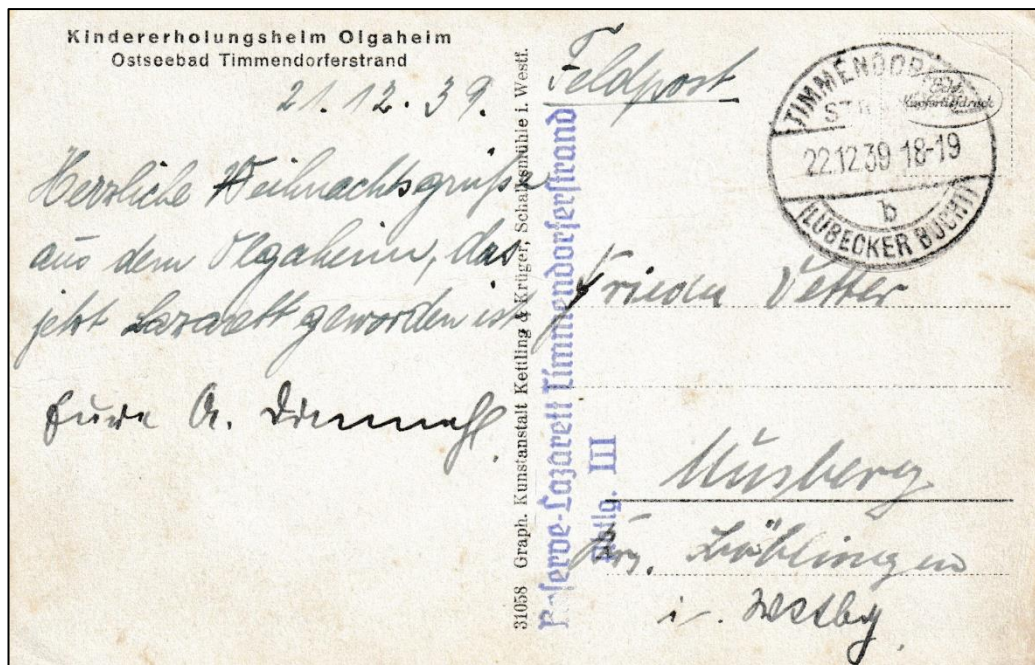 Kindererholungsheim Olgaheim
Ostseebad Timmendorferstrand
21.12.39.
Herzliche Weihnachtsgrüße
aus dem Olgaheim, das
jetzt Lazarett geworden ist.
Eure A.
31058 Graph. Kunstanstalt Kettling & Krüger, Schalksmühle i. Westf.
Reserve-Lazarett Timmendorferstrand
Abtlg. III
Feldpost
TIMMENDORFER
22.12.39 18-19
b
(LÜBECKER BUCHT)
Echt
Kupfertiefdruck
Frieda Vetter
Musberg
Krs. Böblingen
i. Wttbg.